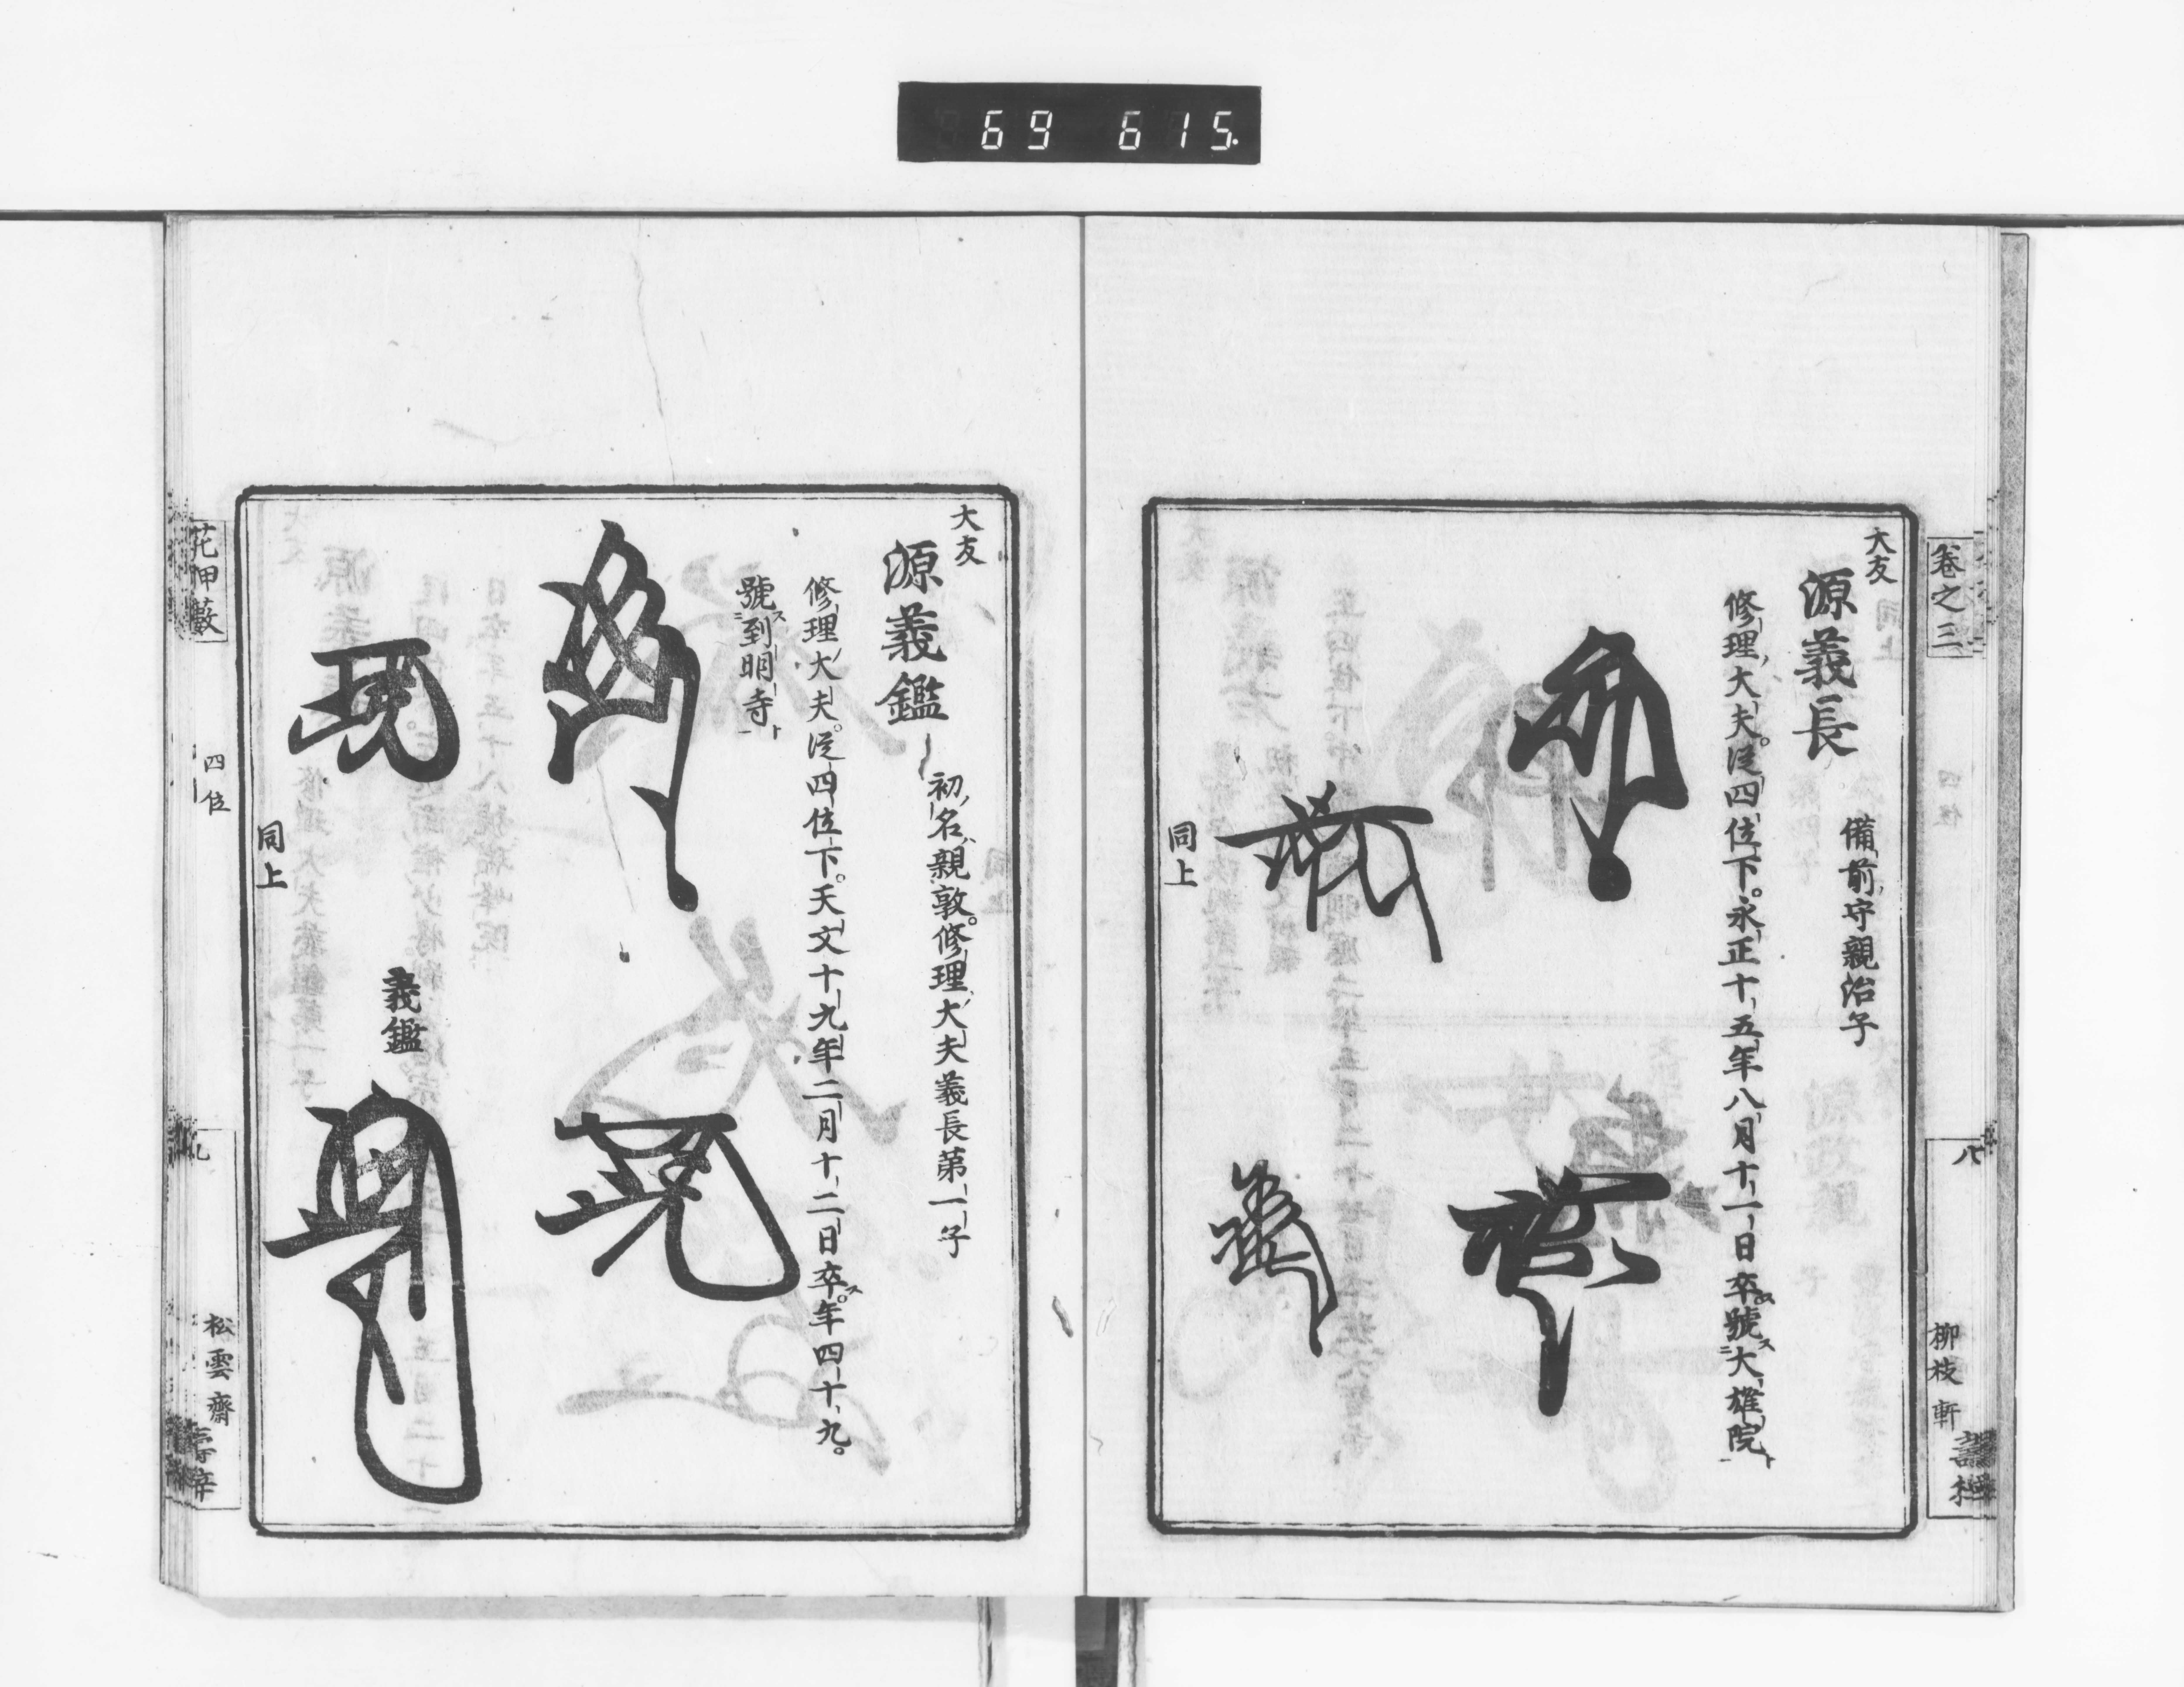 69 615
卷之三
八
柳枝軒
大友
源義長
備前守親治子
修理大夫。從四位下。永正十五年八月十一日卒。號大雄院
同上
大友
源義鑑
初名親敦。修理大夫義長第一子
修理大夫。從四位下。天文十九年二月十二日卒。年四十九。
號到明寺
義鑑
同上
花押藪
四位
九
松雲齋